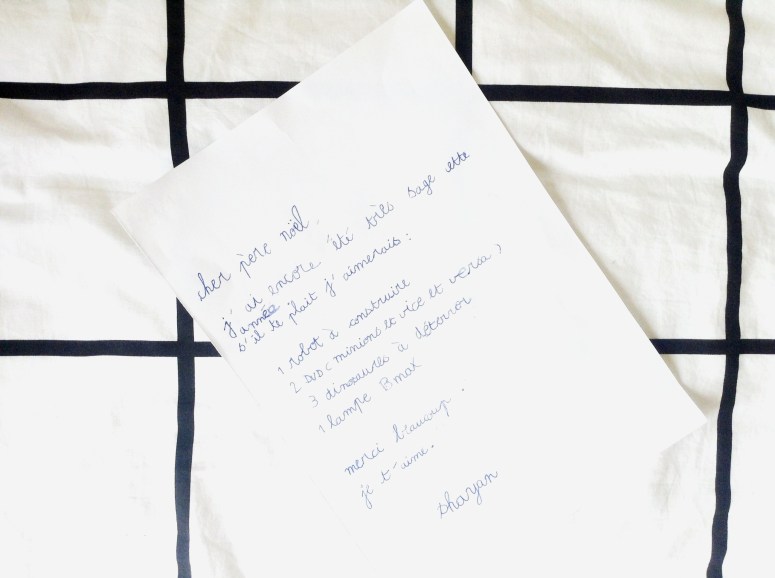 cher père nöel.
j'ai encore été très sage cette
année
s'il te plait j'aimerais :
1 robot à construire
2 DVD (minions et vice et versa)
3 dinosaures à déterror
1 lampe Bmax
merci beaucoup.
je t'aime.
shayan